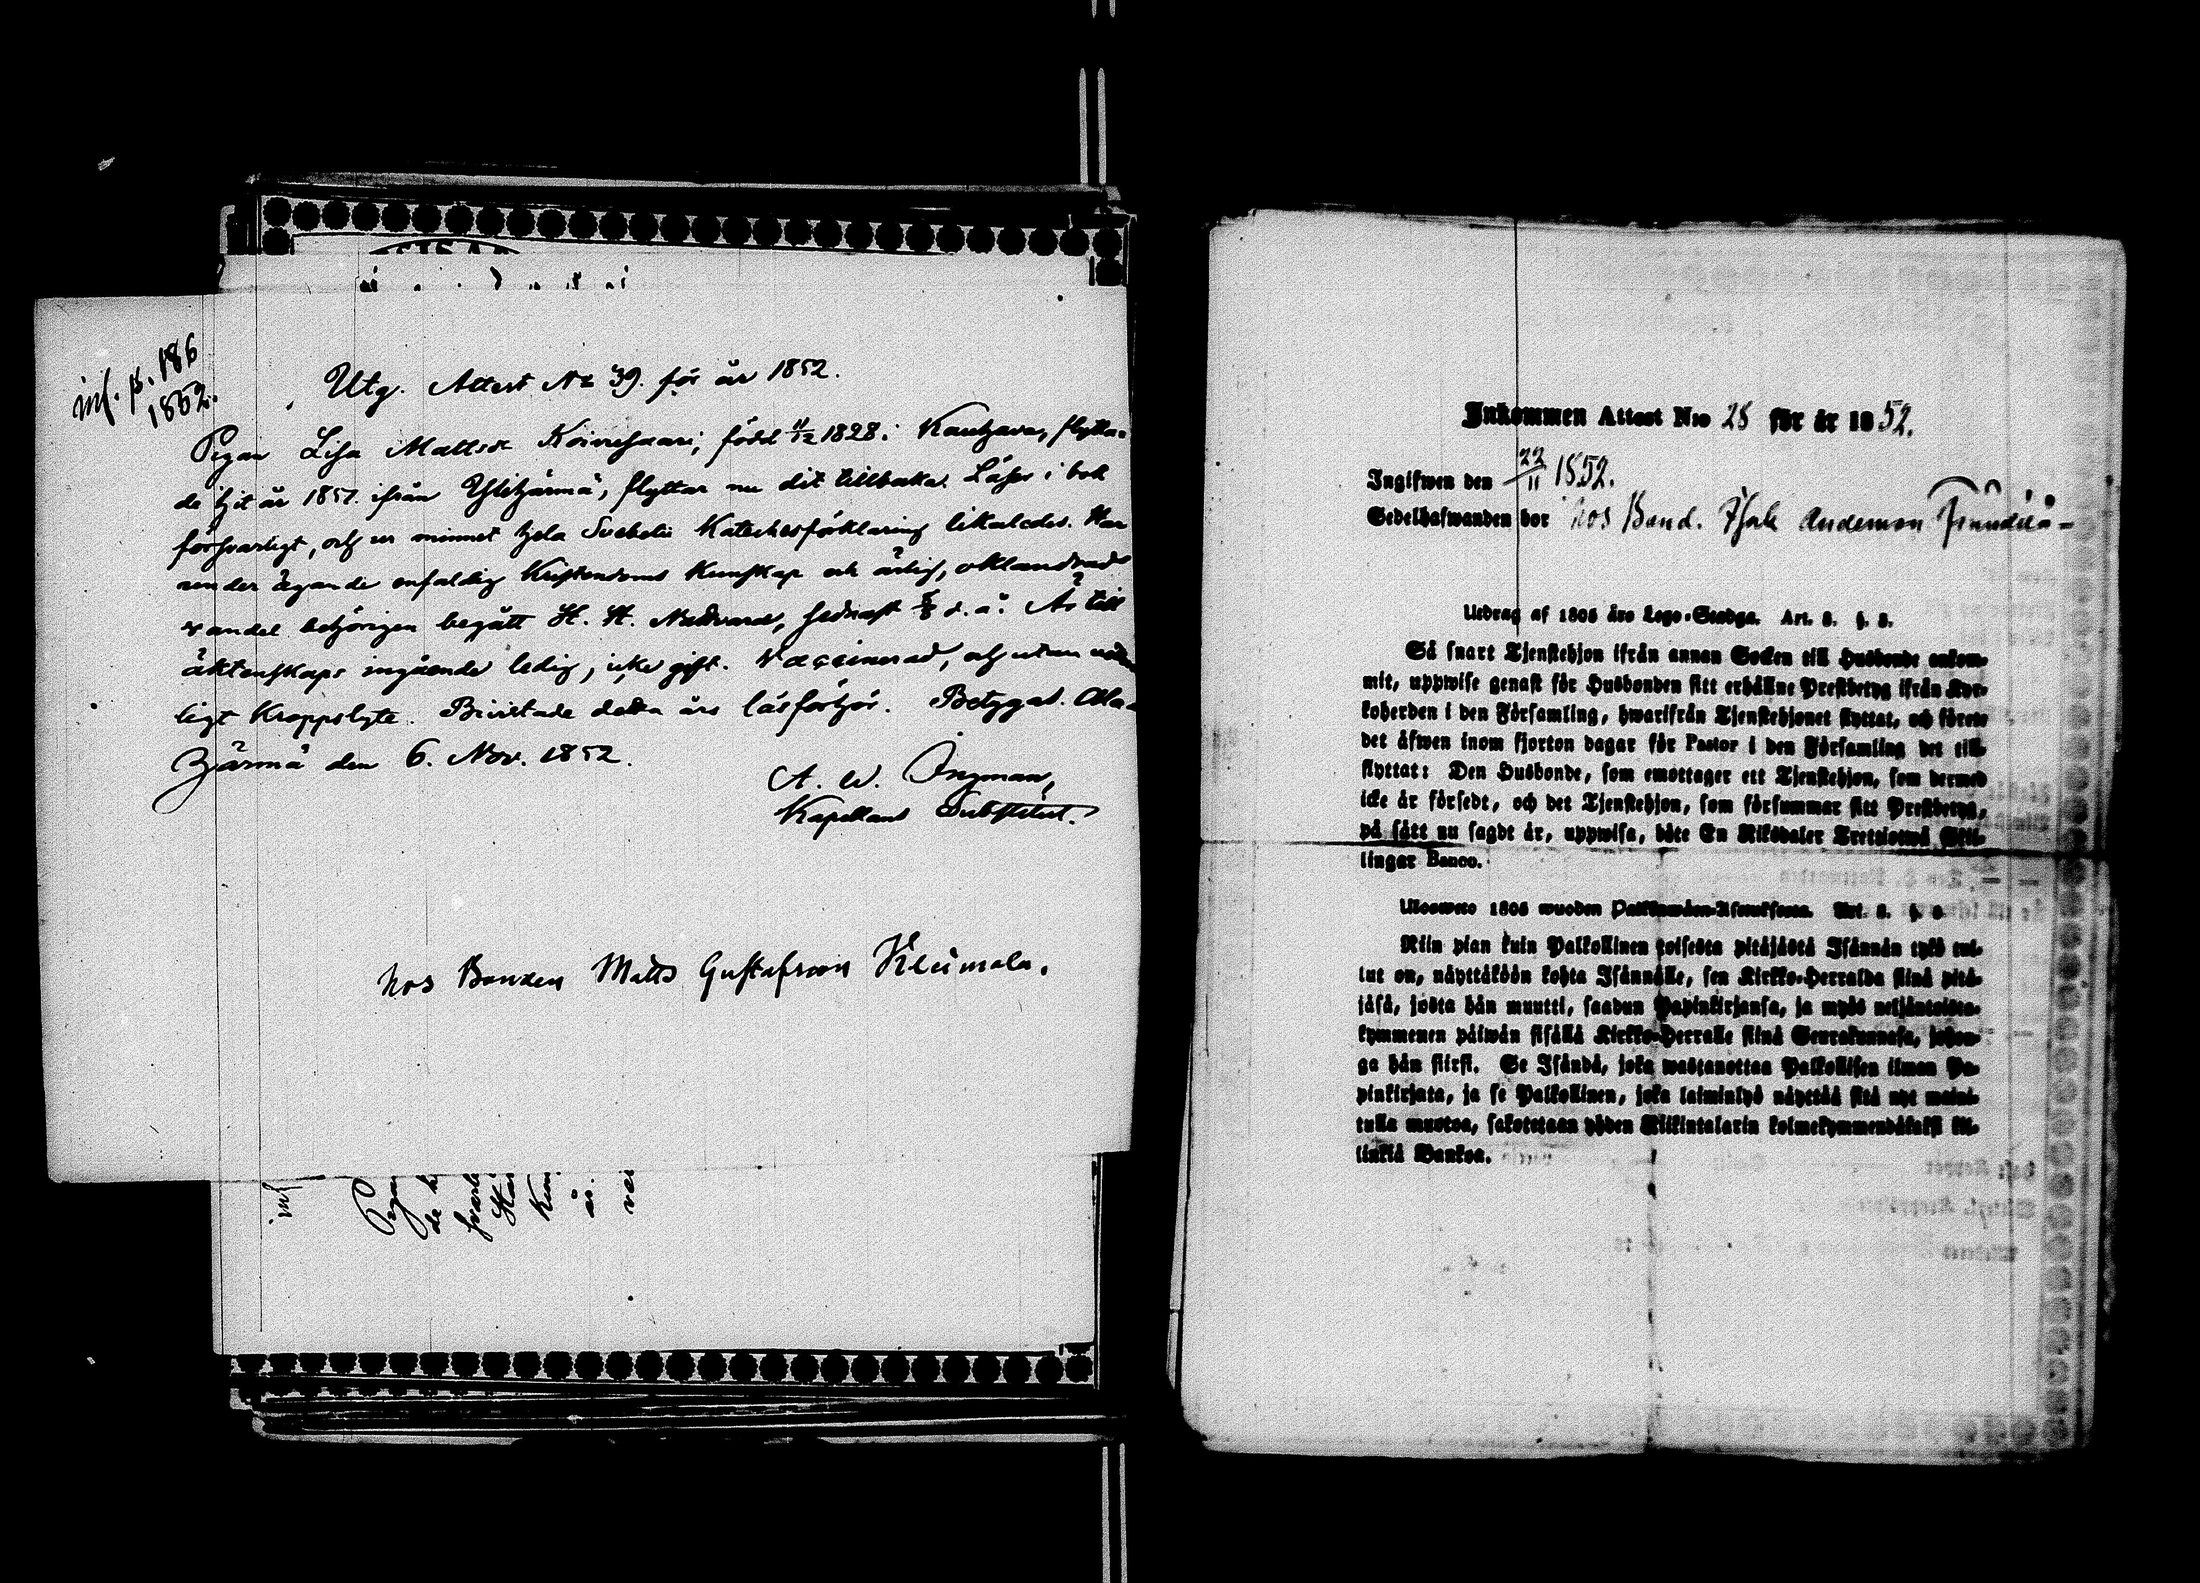 inf. p. 186
1852.
Utg. Attest No 39. för år 1852.
Pigan Lisa Mattsdr Koivusaari, född 11/12 1828 i Kauhava, flytta-
de hit år 1851. ifrån Ylihärmä, flyttar nu dit tillbaka. Läser i bok
försvarligt, och ur minnet hela Svebelii Katechesförklaring likaledes. Har
under ägande enfaldig Kristendoms Kunskap och ärlig, oklandrad
vandel behörigen begått H. H. Nattvard, sednast d. å. Är till
äktenskaps ingående ledig, icke gift. Vaccinerad, och utan
ligt kroppslyte. Bivistade detta års läsförhör. Betygat. Ala-
Härmä den 6. Nov. 1852.
A. W. Ingman,
Kapellans Substitut.
hos Bonden Matts Gustafsson Kleimola.
Inkommen Attest N:o 28 för år 1852.
Ingifwen den 22/11 1852.
Sedelhafwanden bor hos Bond. Isak Andersson
Utdrag af 1805 års Lego-Stadga. Art. 8. §. 8.
Så snart Tjenstehjon ifrån annan Socken till Husbonde ankom-
mit, uppwise genast för Husbonden sitt erhållne Prestbetyg ifrån Kyr-
koherden i den Församling, hwarifrån Tjenstehjonet flyttat, och förete
det äfwen inom fjorton dagar för Pastor i den Församling det till-
flyttat: Den Husbonde, som emottager ett Tjenstehjon, som dermed
icke är försedt, och det Tjenstehjon, som försummar sitt Prestbetyg,
på sätt nu sagdt är, uppwisa, böte En Riksdaler Trettiotwå Skil-
lingar Banco.
Ulosweto 1805 wuoden Palkkawäen-Asetuksesta. Art. 8. §. 8.
Niin pian kuin Palkollinen toisesta pitäjästä Isännän tykö tul-
lut on, näyttäköön kohta Isännälle, sen Kirkko-Herralda siinä pitä-
jäsä, josta hän muutti, saadun Papinkirjansa, ja myös neljäntoista-
kymmenen päiwän sisällä Kirkko-Herralle siinä Seurakunnasa, johon-
ga hän siirsi. Se Isändä, joka wastanottaa Palkollisen ilman Pa-
pinkirjata, ja se Palkollinen, joka laiminlyö näyttää sitä nyt maini-
tulla muotoa, sakotetaan yhden Riikintalarin kolmekymmendäkaksi kil-
linkiä Bankoa.